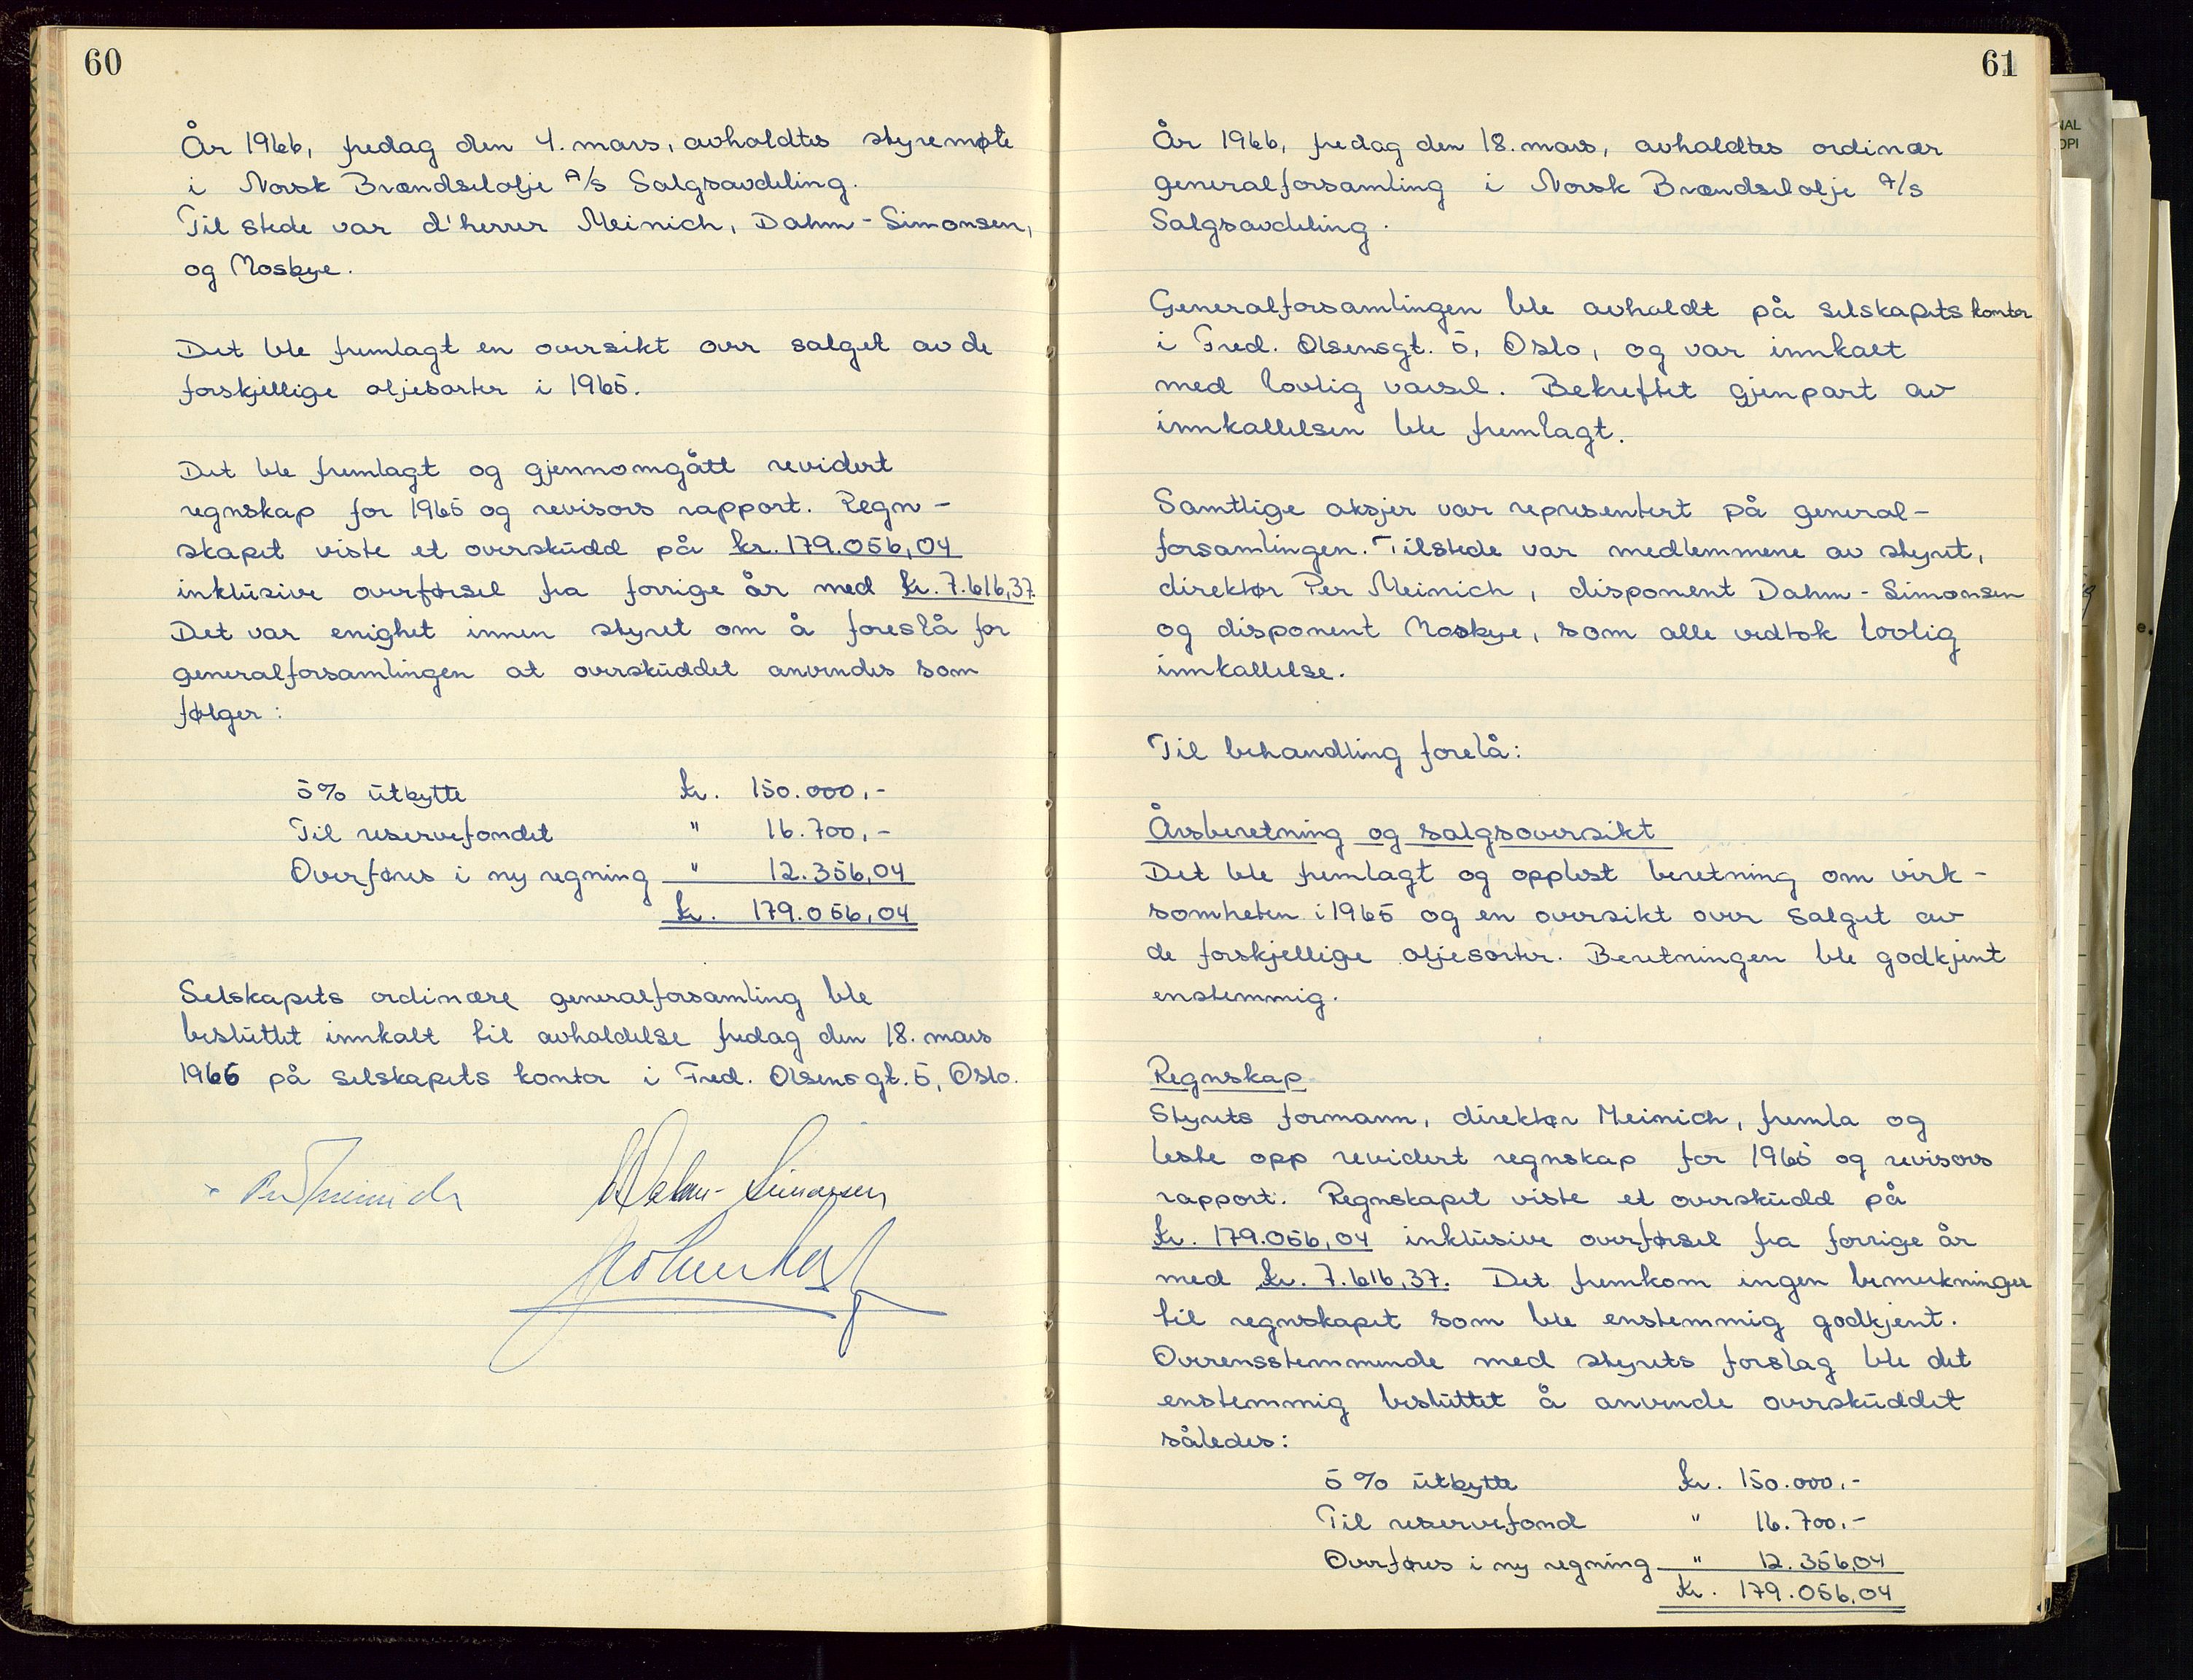 60
År 1966, fredag den 4. mars, avholdtes styremøte
i Norsk Brændselolje A/S Salgsavdeling.
Til stede var d'herrer Meinich, Dahm-Simonsen,
og Moskye.
Det ble fremlagt en oversikt over salget av de
forskjellige oljesorter i 1965.
Det ble fremlagt og gjennomgått revidert
regnskap for 1965 og revisors rapport. Regn-
skapet viste et overskudd på kr. 179.056,04
inklusive overførsel fra forrige år med kr. 7.616,37.
Det var enighet innen styret om å foreslå for
generalforsamlingen at overskuddet anvendes som
følger:
5% utbytte kr. 150.000,-
Til reservefondet " 16.700,-
Overføres i ny regning " 12.356,04
kr. 179.056,04
Selskapets ordinære generalforsamling ble
besluttet innkalt til avholdelse fredag den 18. mars
1966 på selskapets kontor i Fred. Olsensgt. 5, Oslo.
Per Meinich Dahm-Simonsen
61
År 1966, fredag den 18. mars, avholdtes ordinær
generalforsamling i Norsk Brændselolje A/S
Salgsavdeling.
Generalforsamlingen ble avholdt på selskapets kontor
i Fred. Olsensgt. 5, Oslo, og var innkalt
med lovlig varsel. Bekreftet gjenpart av
innkallelsen ble fremlagt.
Samtlige aksjer var representert på general-
forsamlingen. Tilstede var medlemmene av styret,
direktør Per Meinich, disponent Dahm-Simonsen
og disponent Moskye, som alle vedtok lovlig
innkallelse.
Til behandling forelå:
Årsberetning og salgsoversikt
Det ble fremlagt og opplest beretning om virk-
somheten i 1965 og en oversikt over salget av
de forskjellige oljesorter. Beretningen ble godkjent
enstemmig.
Regnskap
Styrets formann, direktør Meinich, fremla og
leste opp revidert regnskap for 1965 og revisors
rapport. Regnskapet viste et overskudd på
kr. 179.056,04 inklusive overførsel fra forrige år
med kr. 7.616,37. Det fremkom ingen bemerkninger
til regnskapet som ble enstemmig godkjent.
Overensstemmende med styrets forslag ble det
enstemmig besluttet å anvende overskuddet
således:
5% utbytte kr. 150.000,-
Til reservefond " 16.700,-
Overføres i ny regning " 12.356,04
kr. 179.056,04